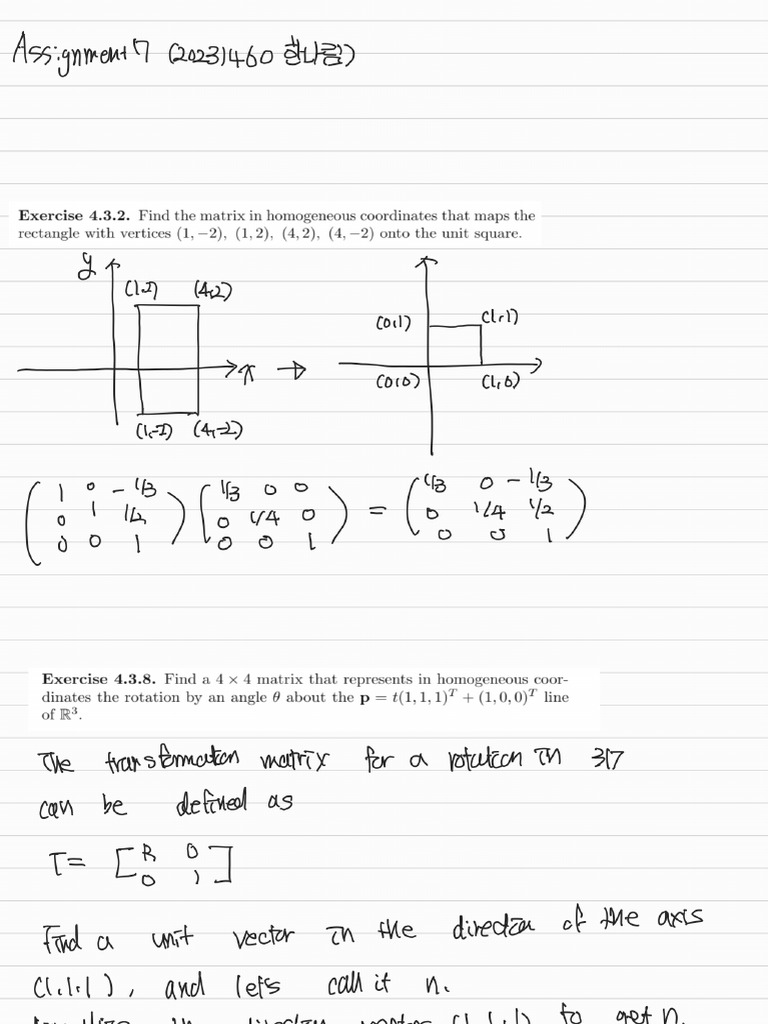 Assignment 7 (2023)460 한나림)
Exercise 4.3.2. Find the matrix in homogeneous coordinates that maps the
rectangle with vertices (1, −2), (1, 2), (4, 2), (4, −2) onto the unit square.
y
(1,2) (4,2)
(0,1) (1,1)
x →
(0,0) (1,0)
(1,-2) (4,-2)
( 1 0 -1/3 ) ( 1/3 0 0 ) = ( 1/3 0 -1/3 )
( 0 1 1/2 ) ( 0 1/4 0 ) ( 0 1/4 1/2 )
( 0 0 1 ) ( 0 0 1 ) ( 0 0 1 )
Exercise 4.3.8. Find a 4 × 4 matrix that represents in homogeneous coor-
dinates the rotation by an angle θ about the p = t(1, 1, 1)ᵀ + (1, 0, 0)ᵀ line
of ℝ³.
The transformation matrix for a rotation in 3D
can be defined as
T= [ R 0
0 1 ]
Find a unit vector in the direction of the axis
(1,1,1), and let's call it n.
the direction vector (1,1,1) to get n.